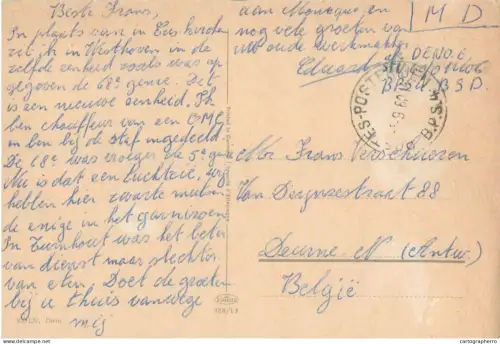 Beste Frans,
In plaats van in Euskirchen
zit ik in Westhoven in de
zelfde eenheid zoals was op
gegeven de 68e genie. Dit
is een nieuwe eenheid. Ik
ben chauffeur van een GMC
en ben bij de staf ingedeeld.
De 68e was vroeger de 5e
Nu is dat een
hebben hier zwarte mutsen
de enige in het garnizoen
In Turnhout was het beter
van dienst maar slechter
van eten. Doet de groeten
bij u thuis vanwege
mij
aan Monique en
nog vele groeten van
uw oude werkmakker
Eduard
M D
B.P.S.
Mr Frans Verschueren
Van 88
Deurne N (Antw.)
België